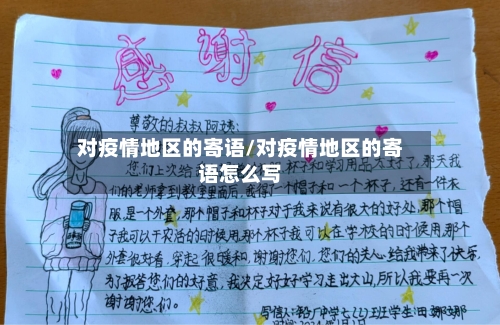 感谢信
尊敬的叔叔阿姨:
对疫情地区的寄语/对疫情地区的寄
语怎么写
您们上次给 杯子和学习用品太好了,那天我
们的老师拿到教室里面后,我得了一个帽子和一个杯子,还有一件衣
服,是一个外套,那个帽子和杯子对于我来说有很大的好处,那个帽
子我可以干农活的时候使用,那个杯子我可以在学校的时候使用,那个
外套很好看,穿起很暖和,谢谢您们,您们的爱心给我带来了快乐,
为了报答您们的好意,我决定好好学习走出大山,所以我要再一次
谢谢您们。
写信人: 中学七(2)班学生
时间2024年1月1日